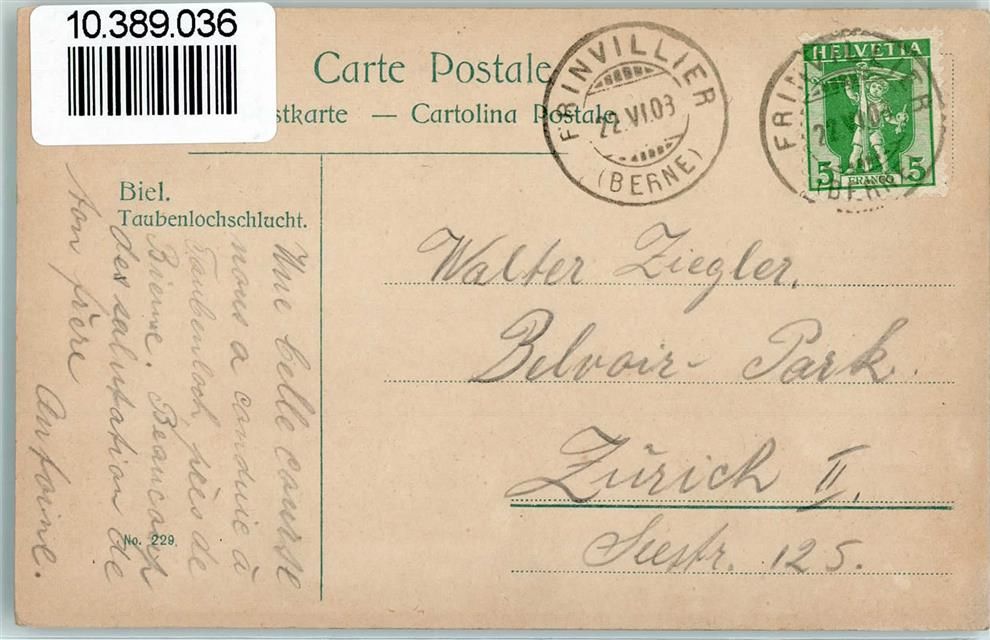 10.389.036
Carte Postale
stkarte — Cartolina Postale
FRINVILLIER
22.VI.09
(BERNE)
HELVETIA
5 5
FRANCO
Biel.
Taubenlochschlucht.
Walter Ziegler,
Belvoir-Park.
Zürich II.
Seestr. 125.
Une belle course
nous a conduie à
Taubenloch, près de
Bienne. Beaucoup
des salutation de
ton frère
Antoine.
No. 229.